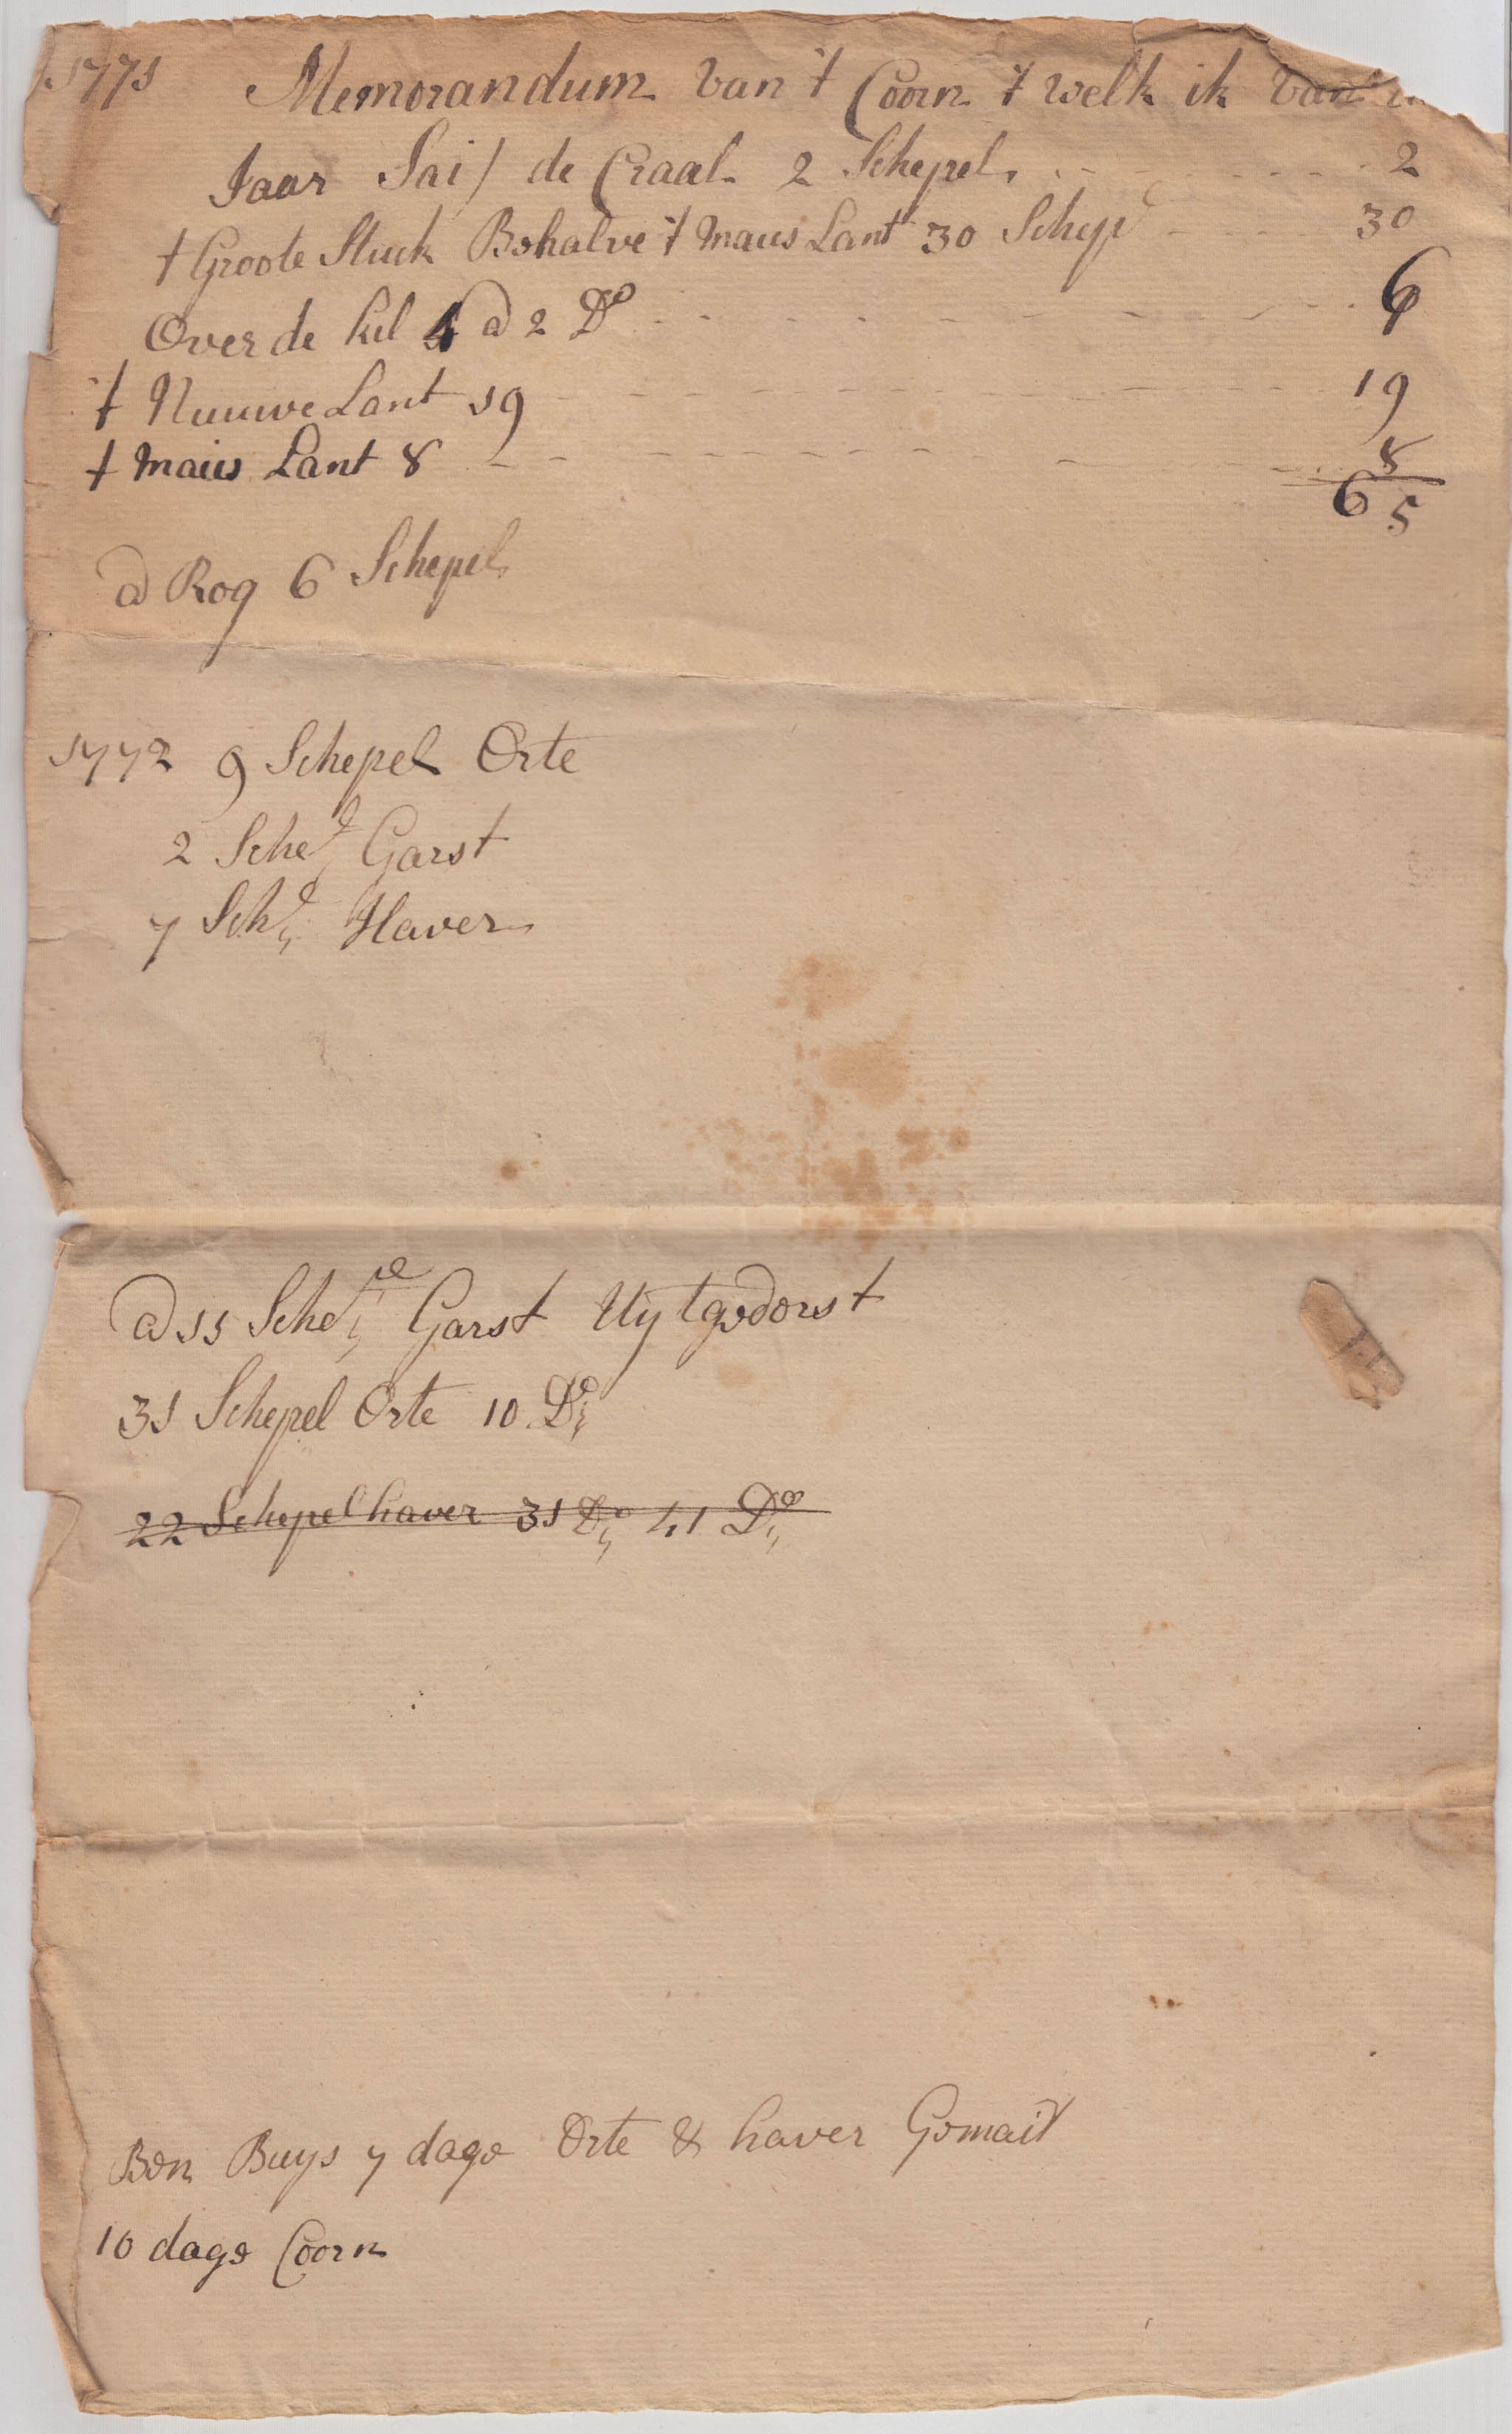 1771 Memorandum van t Coorn t welk ik van
Jaar Sai / de Craal 2 Schepel 2
t Groote Stuck Behalve t Maiis Lant 30 Schepl 30
Over de kil 4 a 2 Do 6
t Nieuwe Lant 19 19
t Maiis Lant 8 8
65
a Rog 6 Schepel
1772 9 Schepel Orte
2 Schel Garst
7 Schl Haver
a 11 Schele Garst Uytgedorst
31 Schepel Orte 10 Do
22 Schepel haver 31 Do 41 Do
Ben Buys 7 dage Orte & haver Gemait
10 dage Coorn